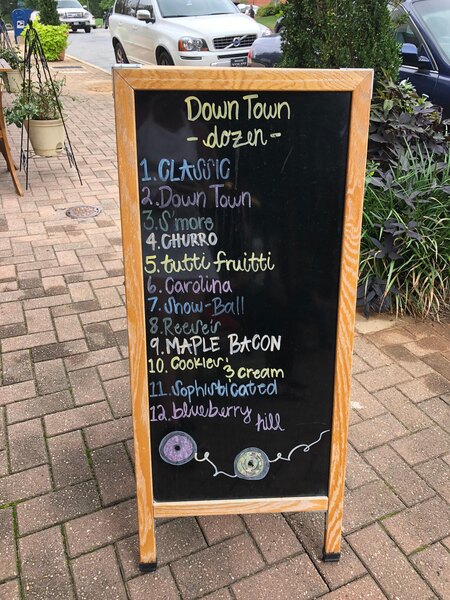 Down Town
- dozen -
1. CLASSIC
2. Down Town
3. S'more
4. CHURRO
5. tutti fruitti
6. Carolina
7. Snow-Ball
8. Reese's
9. MAPLE BACON
10. Cookies & cream
11. Sophisticated
12. blueberry hill